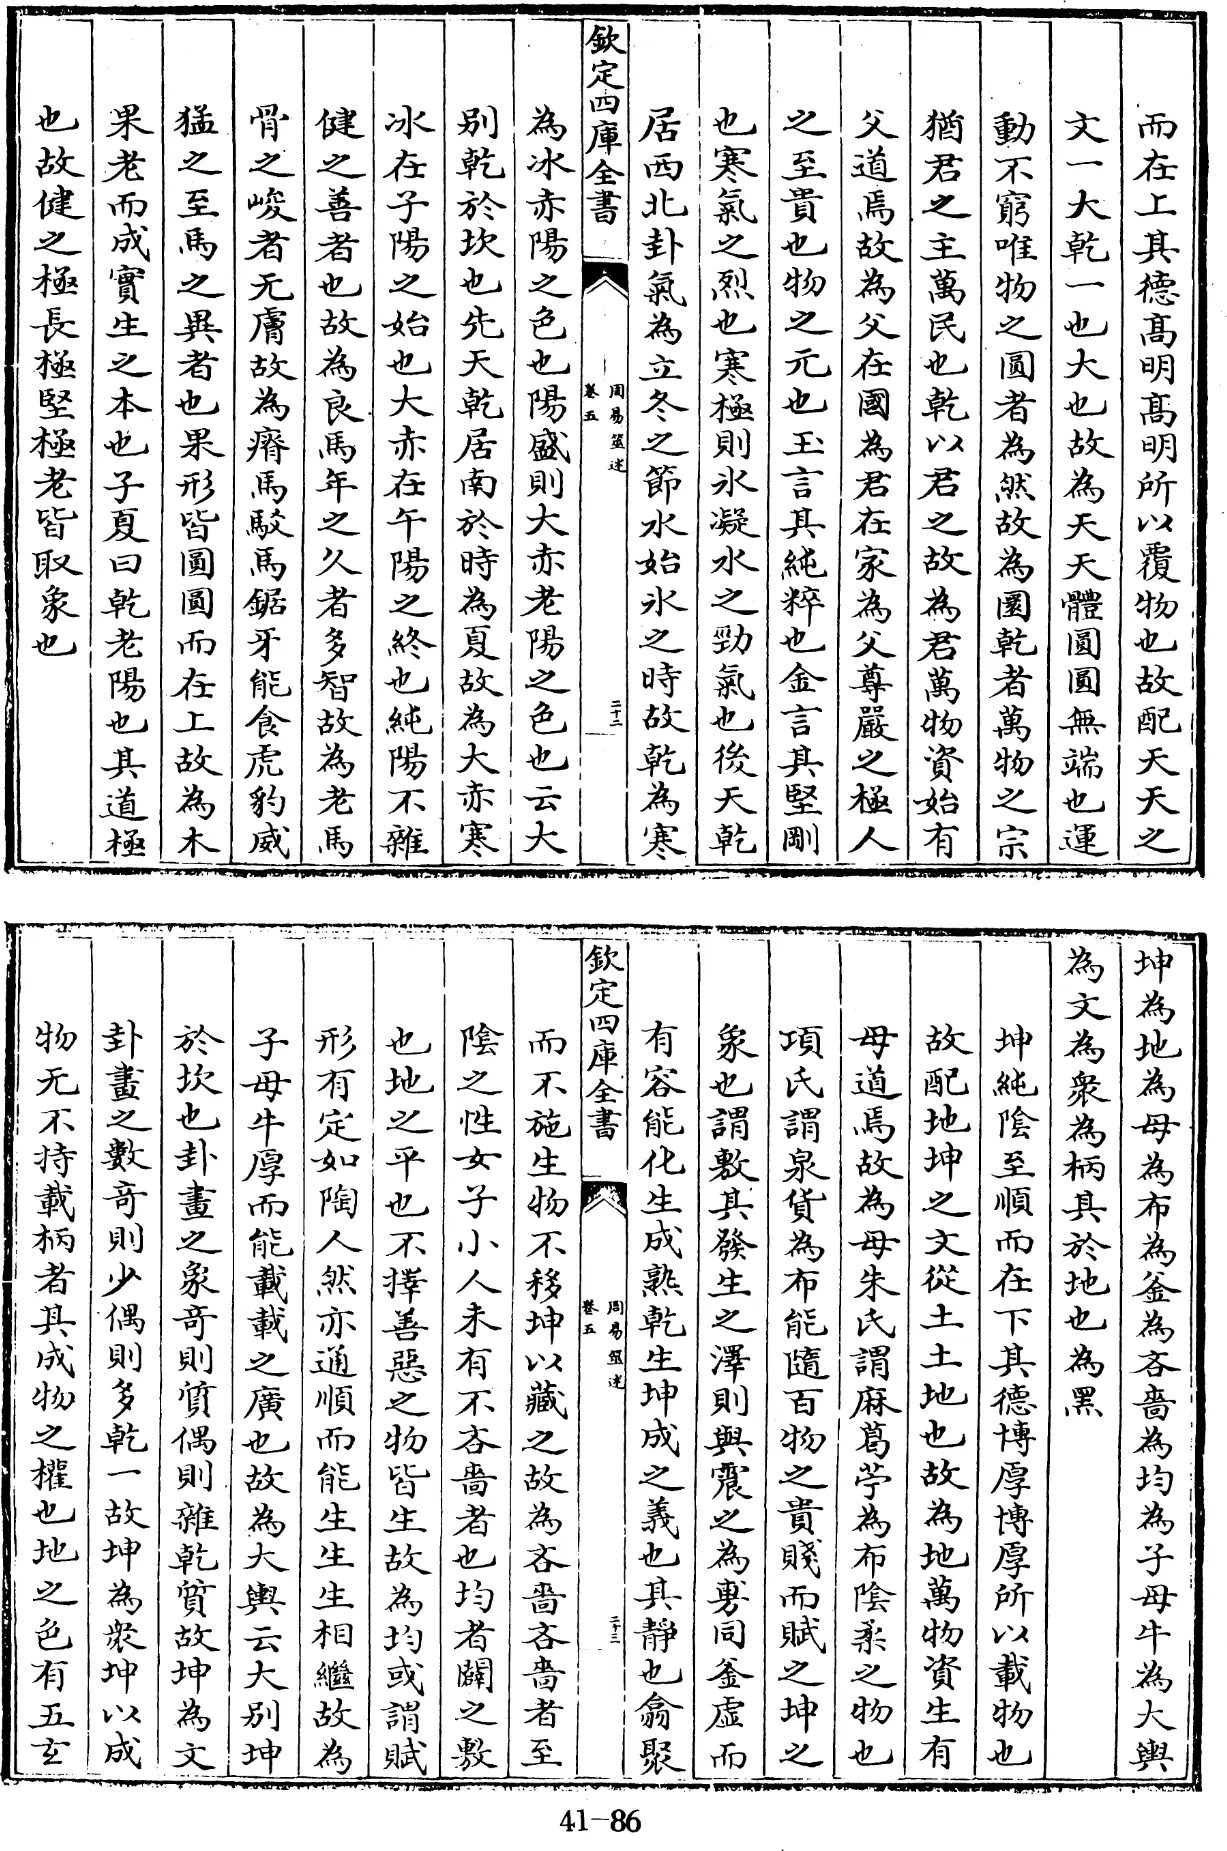 而在上其德髙明髙明所以覆物也故配天天之
文一大乾一也大也故為天天體圓圓無端也運
動不窮唯物之圓者為然故為圜乾者萬物之宗
猶君之主萬民也乾以君之故為君萬物資始有
父道焉故為父在國為君在家為父尊嚴之極人
之至貴也物之元也玉言其純粹也金言其堅剛
也寒氣之烈也寒極則氷凝水之勁氣也後天乾
居西北卦氣為立冬之節水始氷之時故乾為寒
欽定四庫全書
周易筮述
卷五
二十二
為冰赤陽之色也陽盛則大赤老陽之色也云大
别乾於坎也先天乾居南於時為夏故為大赤寒
冰在子陽之始也大赤在午陽之終也純陽不雜
健之善者也故為良馬年之久者多智故為老馬
骨之峻者无膚故為瘠馬駁馬鋸牙能食虎豹威
猛之至馬之異者也果形皆圓圓而在上故為木
果老而成實生之本也子夏曰乾老陽也其道極
也故健之極長極堅極老皆取象也
坤為地為母為布為釜為吝嗇為均為子母牛為大輿
為文為衆為柄其於地也為黑
坤純陰至順而在下其德博厚博厚所以載物也
故配地坤之文從土土地也故為地萬物資生有
母道焉故為母朱氏謂麻葛苧為布陰柔之物也
項氏謂泉貨為布能隨百物之貴賤而賦之坤之
象也謂敷其發生之澤則與震之為旉同釜虚而
有容能化生成熟乾生坤成之義也其靜也翕聚
欽定四庫全書
周易筮述
卷五
二十三
而不施生物不移坤以藏之故為吝嗇吝嗇者至
陰之性女子小人未有不吝嗇者也均者闢之敷
也地之平也不擇善惡之物皆生故為均或謂賦
形有定如陶人然亦通順而能生生生相繼故為
子母牛厚而能載載之廣也故為大輿云大别坤
於坎也卦畫之象奇則質偶則雜乾質故坤為文
卦畫之數奇則少偶則多乾一故坤為衆坤以成
物无不持載柄者其成物之權也地之色有五玄
41-86